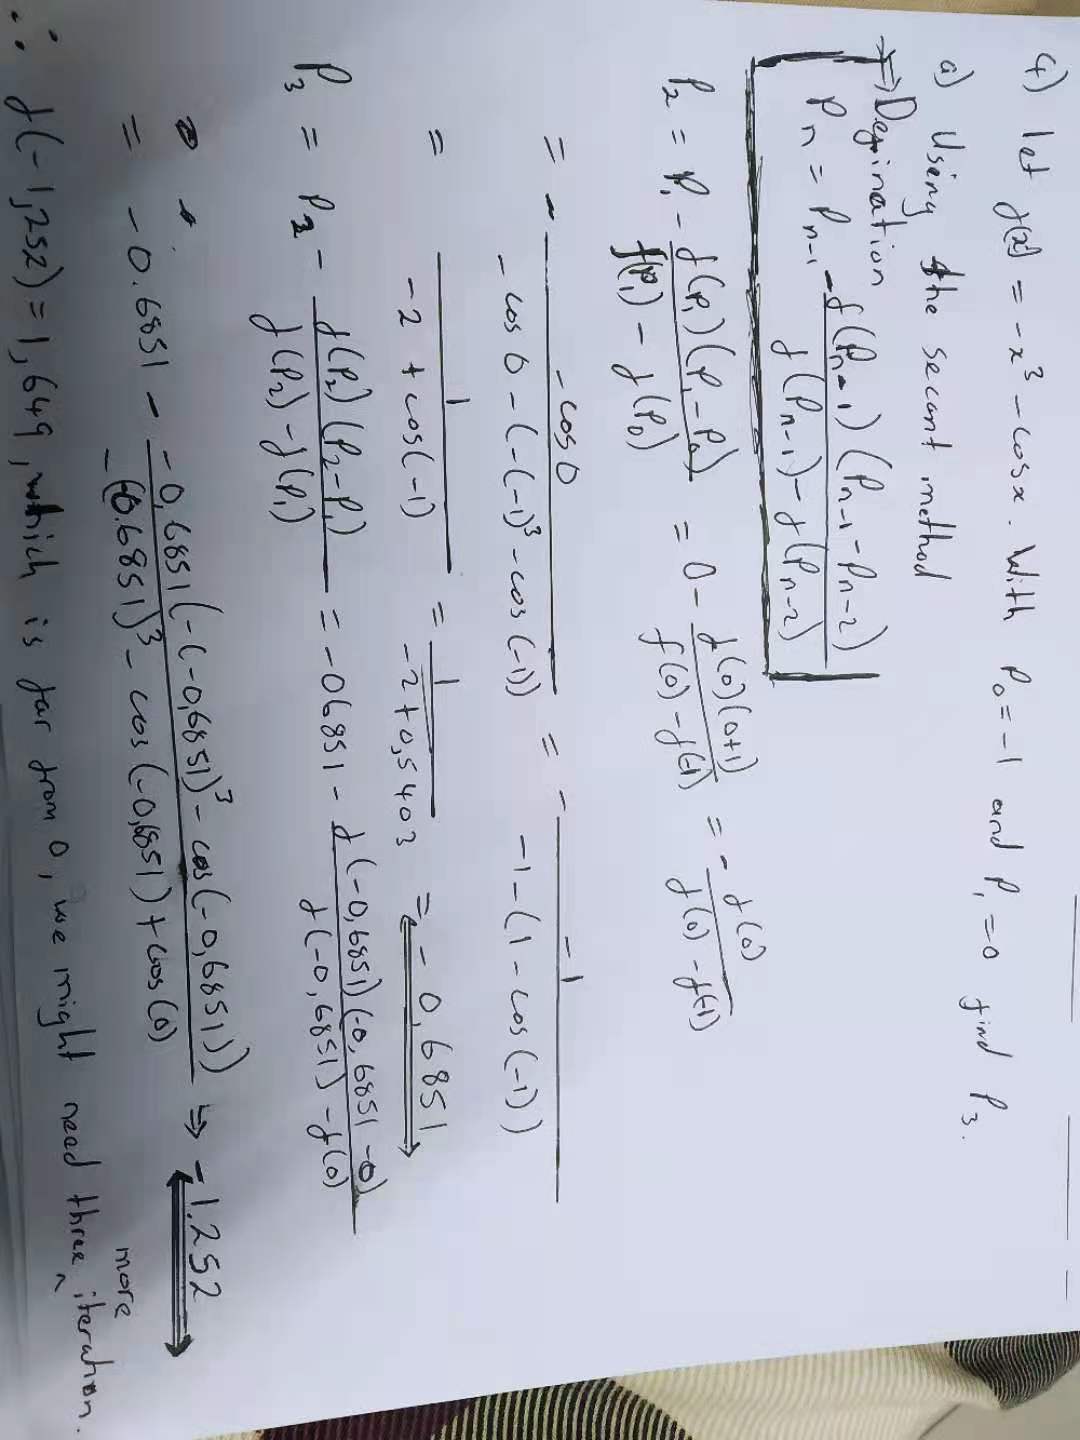 4) let f(x) = -x³ - cos x. With P₀ = -1 and P₁ = 0 find P₃.
a) Using the secant method
⇒ Degination
Pn = Pn-1 - f(Pn-1)(Pn-1 - Pn-2) / f(Pn-1) - f(Pn-2)
P₂ = P₁ - f(P₁)(P₁ - P₀) / f(P₁) - f(P₀) = 0 - f(0)(0+1) / f(0) - f(-1) = - f(0) / f(0) - f(-1)
= - -cos 0 / -cos 0 - (-(-1)³ - cos(-1)) = - -1 / -1 - (1 - cos(-1))
= 1 / -2 + cos(-1) = 1 / -2 + 0,5403 = -0,6851
P₃ = P₂ - f(P₂)(P₂ - P₁) / f(P₂) - f(P₁) = -06851 - f(-0,6851)(-0,6851 - 0) / f(-0,6851) - f(0)
= -0.6851 - -0,6851(-(-0,6851)³ - cos(-0,6851)) / -(-0.6851)³ - cos(-0,6851) + cos(0) ⇒ -1.252
∴ f(-1,252) = 1,649, which is far from 0, we might need three more iteration.